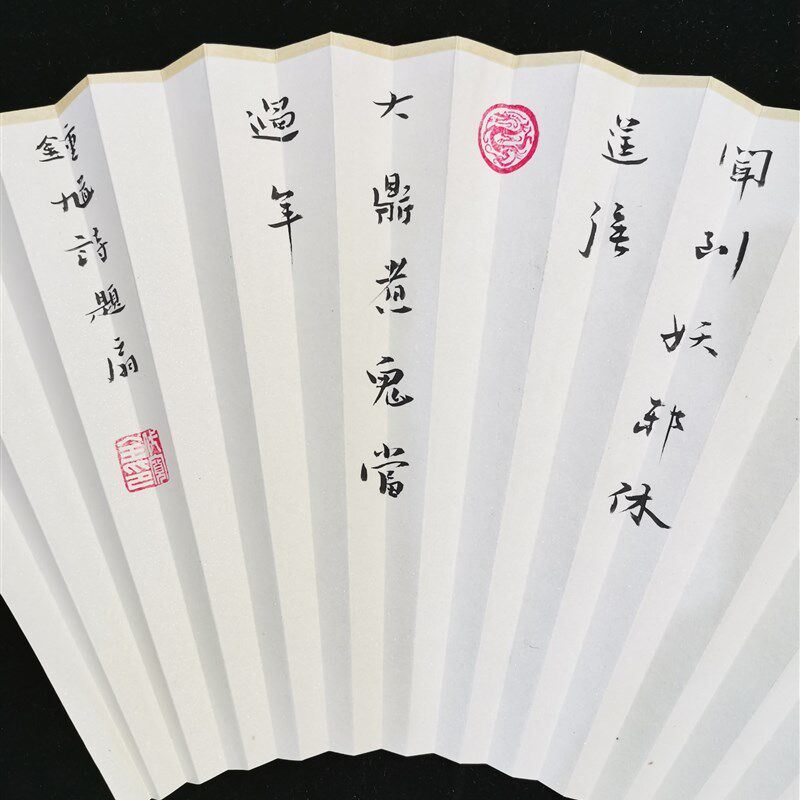 聞到妖邪休
逞強
大鼎煮鬼當
過年
鍾馗詩題扇